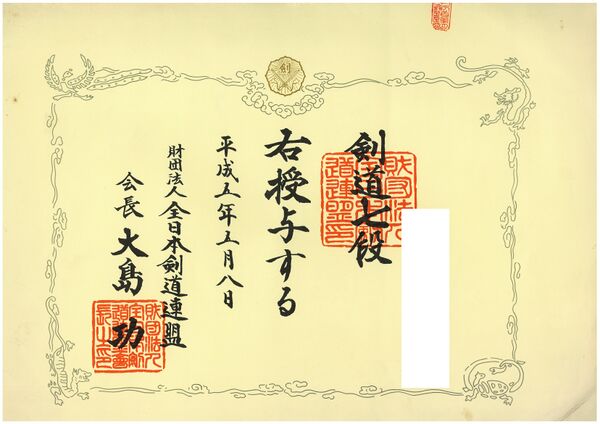 剣道七段
右授与する
平成五年五月八日
財団法人 全日本剣道連盟
会長 大島 功
剣